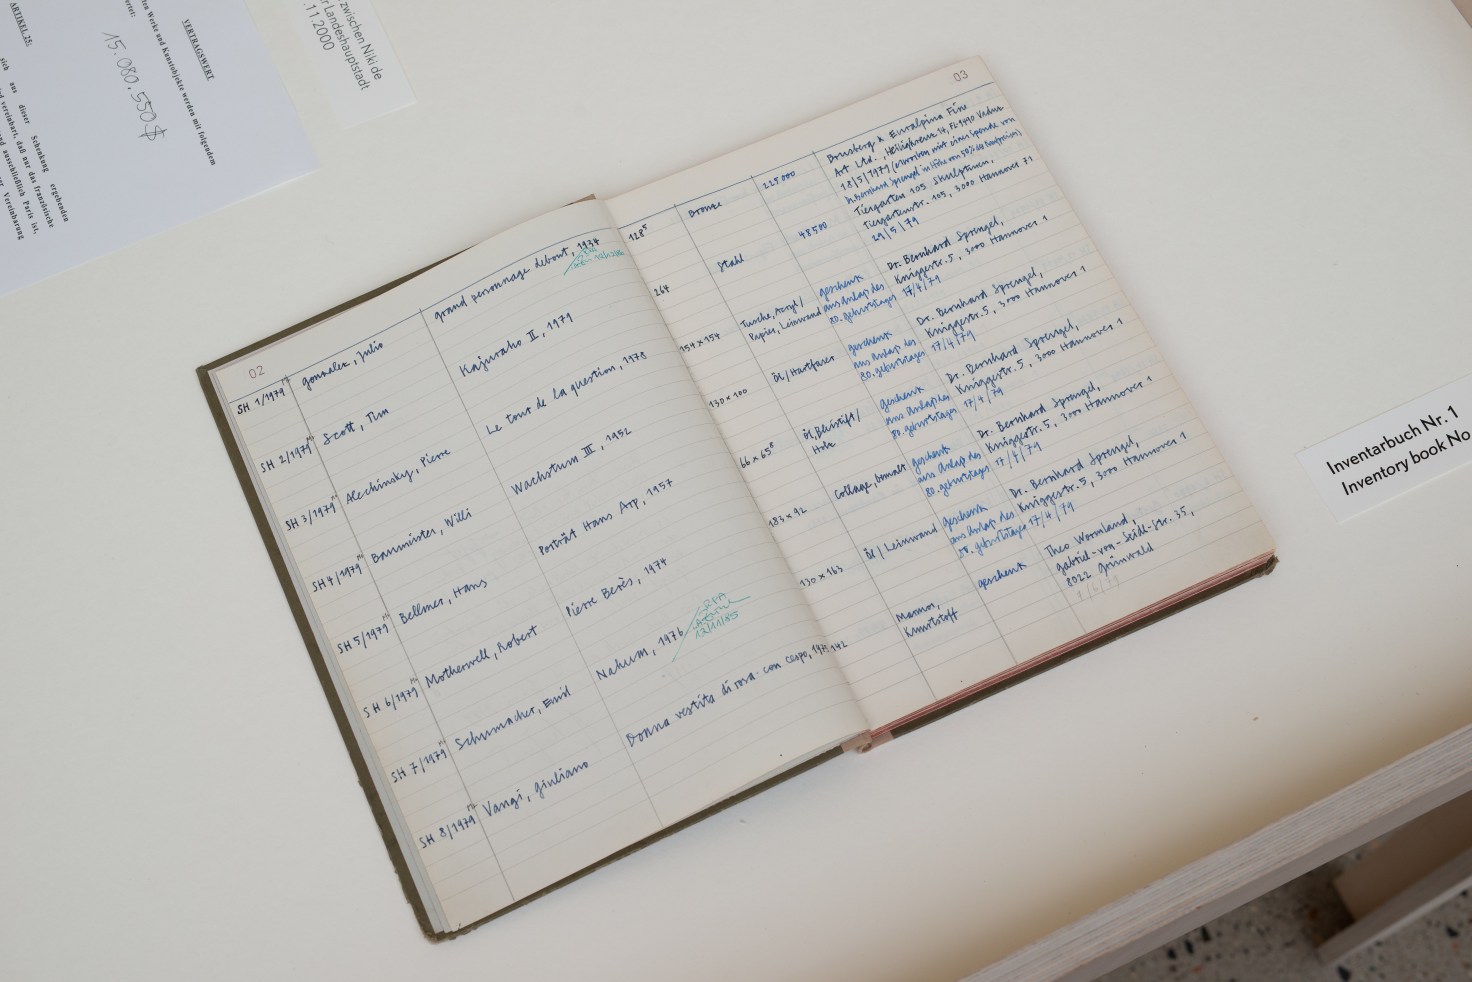 ARTIKEL 25:
sich aus dieser Schenkung ergebenden
vereinbart, daß nur das französische
und ausschließlich Paris ist,
Vereinbarung
VERTRAGSWERT
Werke und Kunstobjekte werden mit folgendem
15.080.550$
zwischen Niki de
Landeshauptstadt
.11.2000
02
SH 1/1979 gonzalez, Julio grand personnage debout, 1934
SH 2/1979 Scott, Tim Kajuraho II, 1979
SH 3/1979 Alechinsky, Pierre Le tour de la question, 1978
SH 4/1979 Baumeister, Willi Wachstum III, 1952
SH 5/1979 Bellmer, Hans Porträt Hans Arp, 1957
SH 6/1979 Motherwell, Robert Pierre Berès, 1974
SH 7/1979 Schumacher, Emil Nahum, 1976
12/11/85
SH 8/1979 Vangi, giuliano Donna vestita di rosa con cespo, 1975
03
128⁵ Bronze 225000 Brusberg & Euralpina Fine
Art Ltd., Heiligkreuz 14, FL-9490 Vaduz
18/5/1979 (erworben mit einer Spende von
264 Stahl 48500 Tiergarten 105 Skulpturen,
Tiergartenstr. 105, 3000 Hannover 71
29/5/79
154 x 154 Tusche, Acryl/ geschenk Dr. Bernhard Sprengel,
Papier, Leinwand aus Anlaß des Kniggestr. 5, 3000 Hannover 1
80. geburtstages 17/4/79
130 x 100 Öl/Hartfaser geschenk Dr. Bernhard Sprengel,
aus Anlaß des Kniggestr. 5, 3000 Hannover 1
80. geburtstages 17/4/79
66 x 65⁸ Öl, Bleistift/ geschenk Dr. Bernhard Sprengel,
Holz aus Anlaß des Kniggestr. 5, 3000 Hannover 1
80. geburtstages 17/4/79
183 x 92 Collage, geschenk Dr. Bernhard Sprengel,
aus Anlaß des Kniggestr. 5, 3000 Hannover 1
80. geburtstages 17/4/79
130 x 163 Öl/Leinwand geschenk Dr. Bernhard Sprengel,
aus Anlaß des Kniggestr. 5, 3000 Hannover 1
80. geburtstages 17/4/79
142 Marmor, geschenk Theo Wormland,
Kunststoff gabriel-von-Seidl-Str. 35,
8022 grünwald
Inventarbuch Nr. 1
Inventory book No